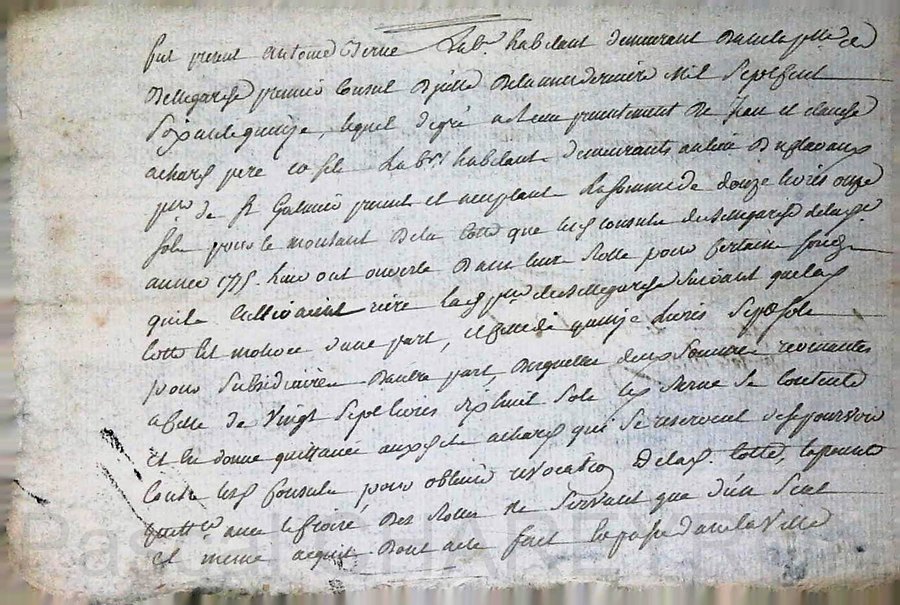 fut present antoine Verne Lab.r habitant demeurant dans la p.sse de
Bellegarde premier Consul d'jcelle de lannée derniere Mil Sept Cent
soixante quinze, lequel degré a recu presentement de Jean et claude
achard pere et fils Lab.rs habitant demeurants au lieu
p.sse de S.t Galmier present et acceptant la somme de douze livres onze
sols pour le montant de la Cotte que les consuls de Bellegarde de lad.e
année 1775. leur ont ouverte dans leur Rolle pour Certains fonds
quils Cultivaient riere lad. p.sse de Bellegarde Suivant que lad.
Cotte Est motivée d'une part, et celle de quinze Livres Sept Sols
pour Subsidiaire d'autre part, desquelles deux Sommes revenantes
a Celle de Vingt Sept livres dixhuit Sols led. Verne Se Contente
Et En donne quittance auxdits achard qui Se reservent de se pourvoir
Contre lesd. Consuls pour obtenir revocation de lad. Cotte, la presente
quitt.ce avec des Rolles ne Servant que d'un Seul
et meme acquit. Dont acte fait et passé dans la Ville
Pascal CHAREYRON